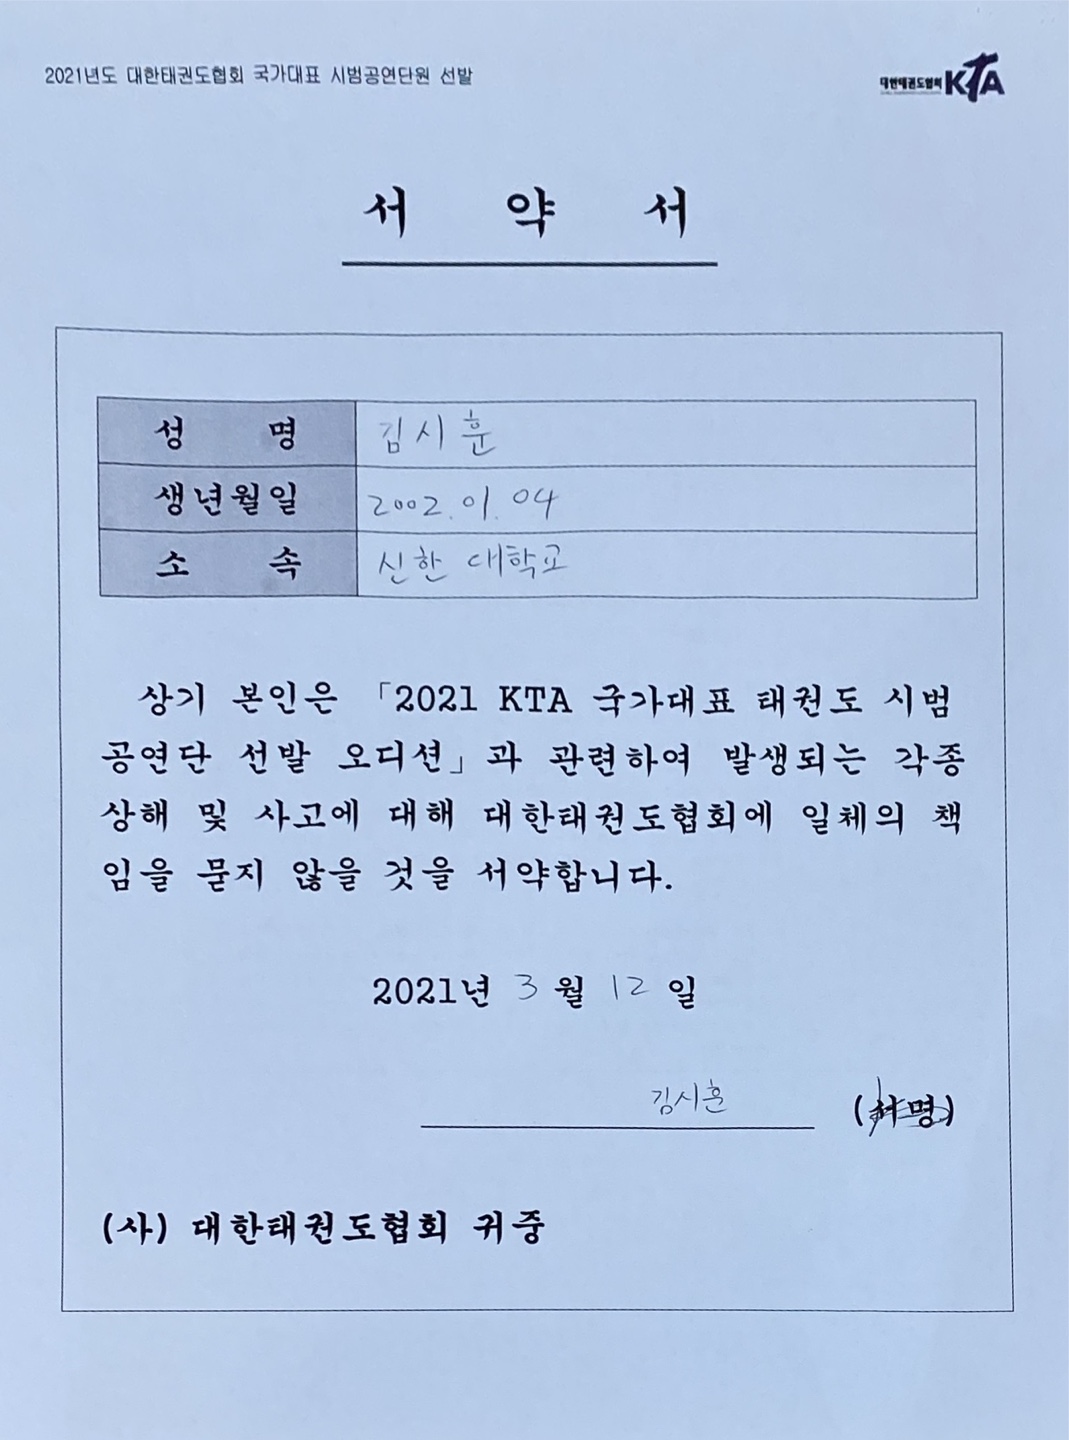 2021년도 대한태권도협회 국가대표 시범공연단원 선발
대한태권도협회 KTA
서 약 서
성 명 김시훈
생년월일 2002. 01. 04
소 속 신한 대학교
상기 본인은 「2021 KTA 국가대표 태권도 시범
공연단 선발 오디션」과 관련하여 발생되는 각종
상해 및 사고에 대해 대한태권도협회에 일체의 책
임을 묻지 않을 것을 서약합니다.
2021년 3 월 12 일
김시훈 (서명)
(사) 대한태권도협회 귀중